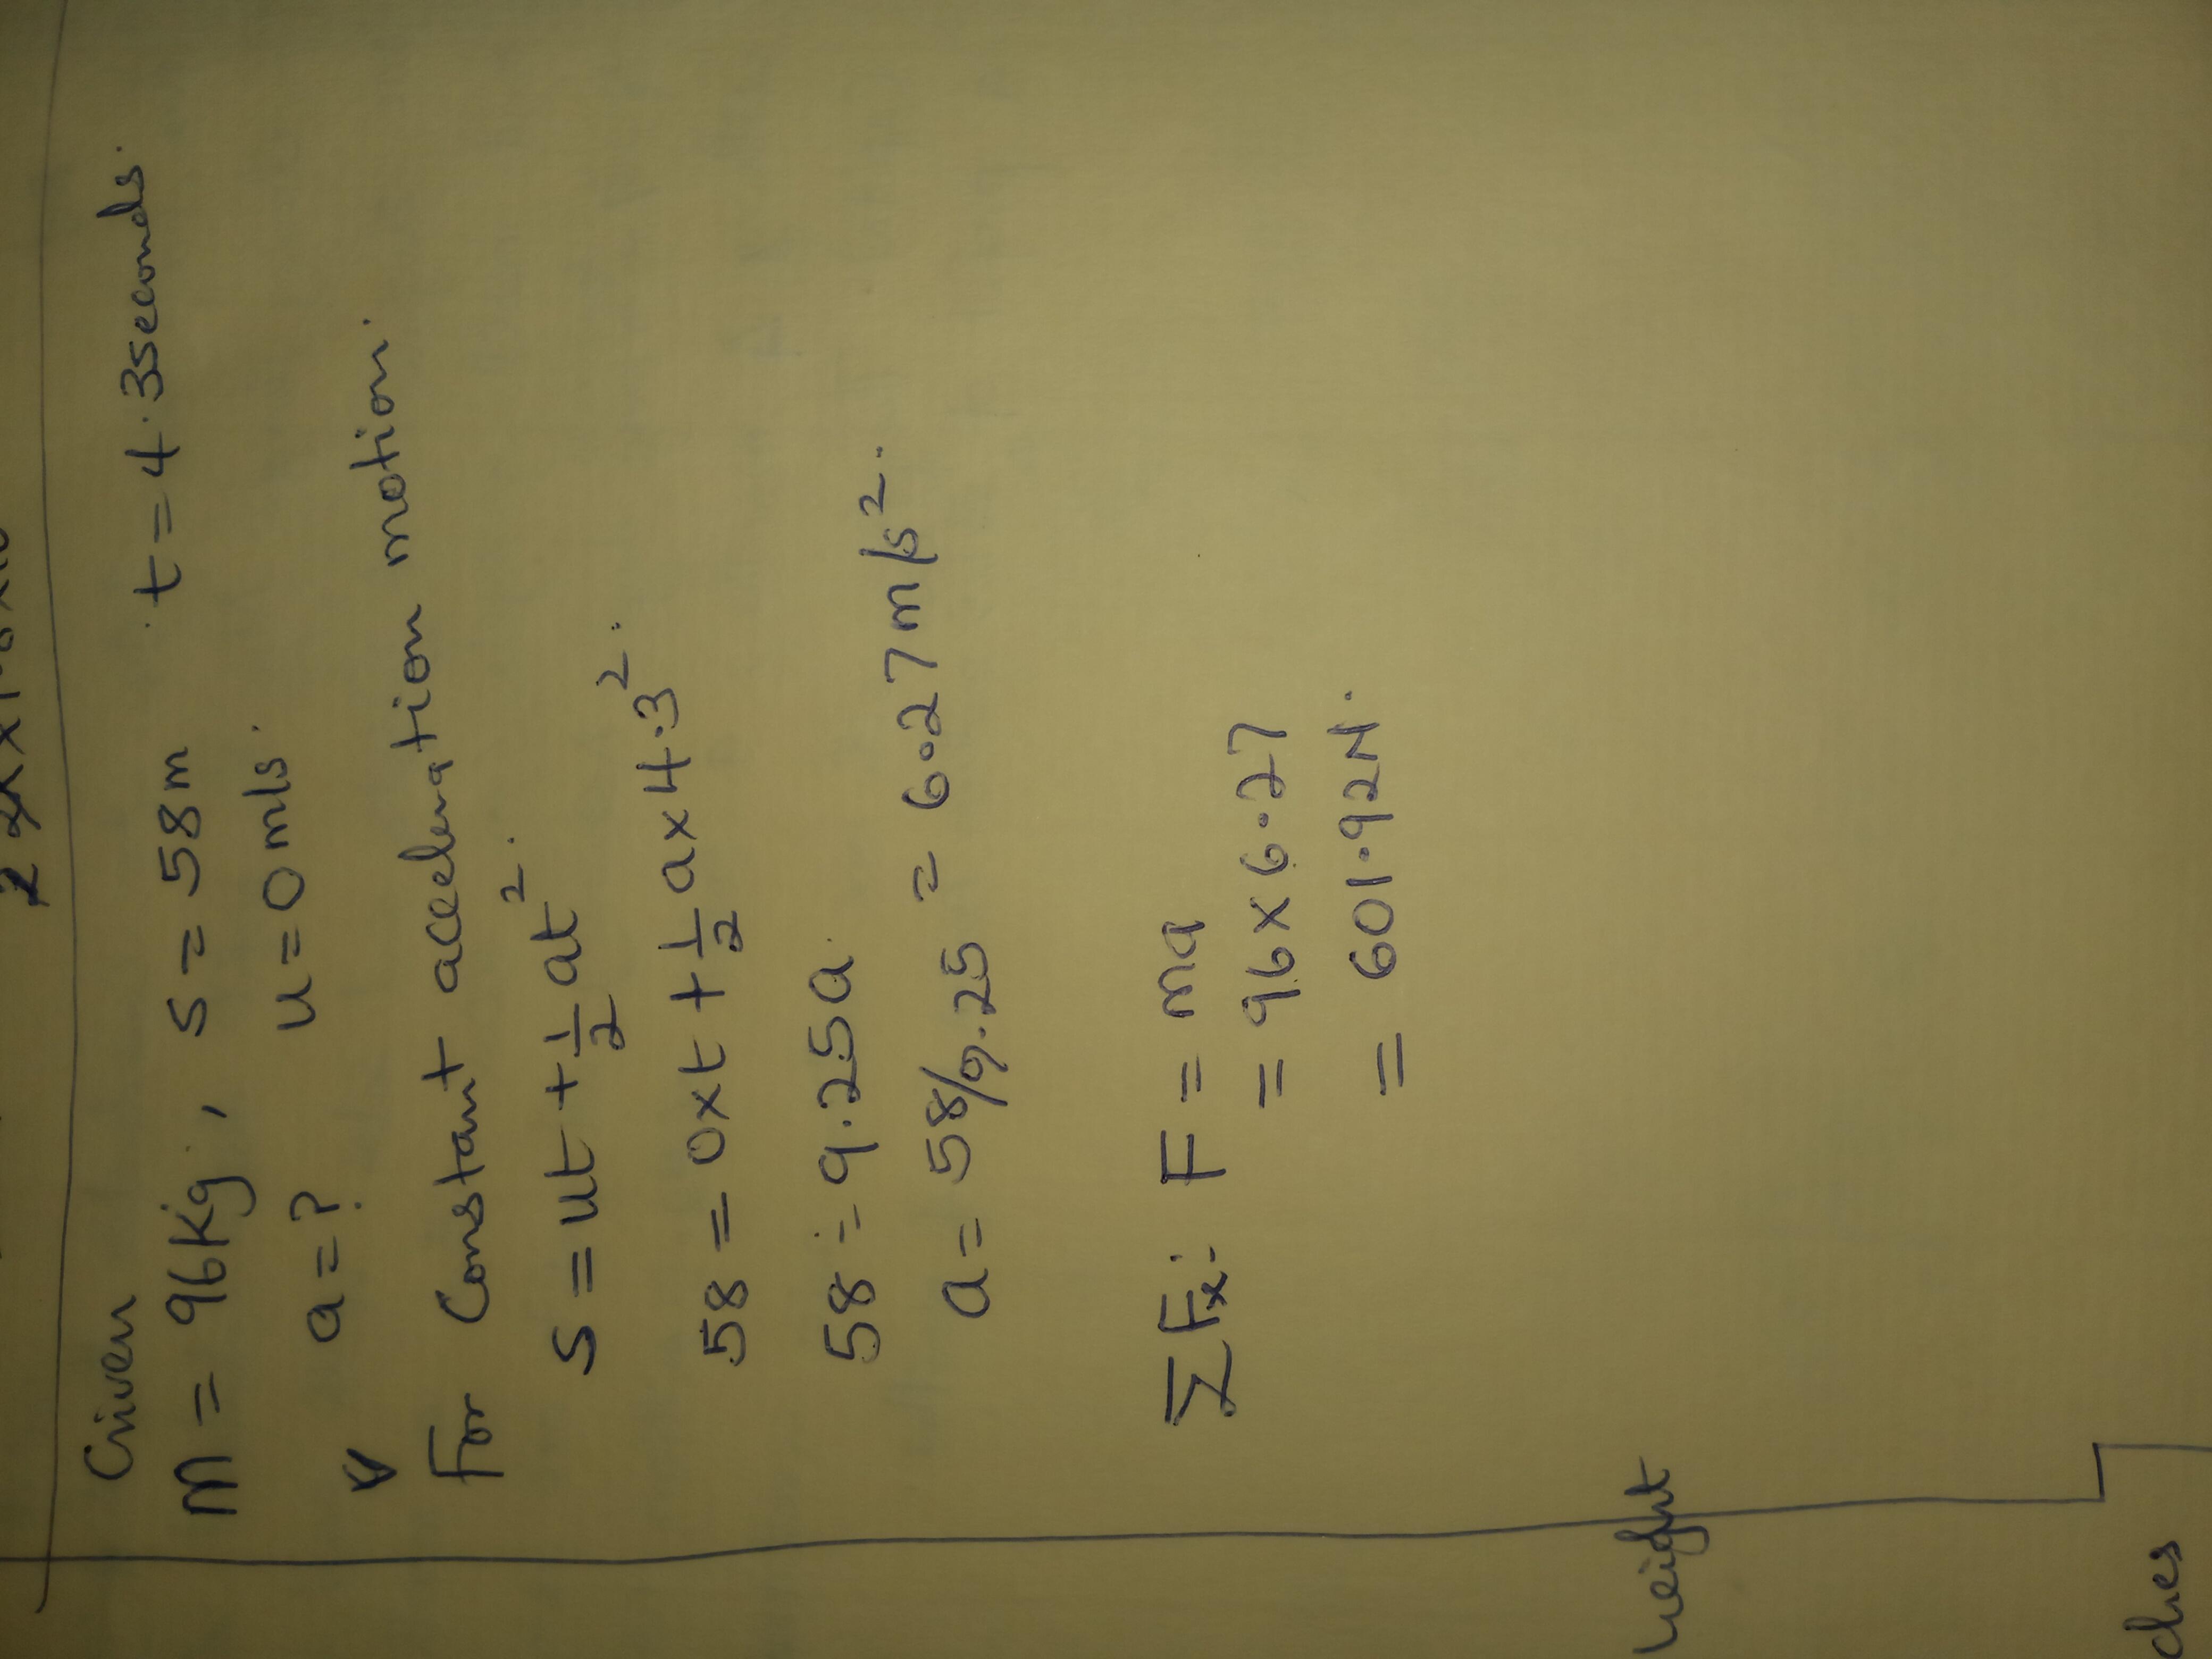 Given
m = 96Kg, s = 58m t = 4.3seconds.
a = ? u = 0 m/s.
For Constant acceleration motion.
s = ut + 1/2 at².
58 = 0xt + 1/2 a x 4.3².
58 = 9.25a
a = 58/9.25 = 6.27 m/s².
ΣFx: F = ma
= 96 x 6.27
= 601.92N.
height
ches